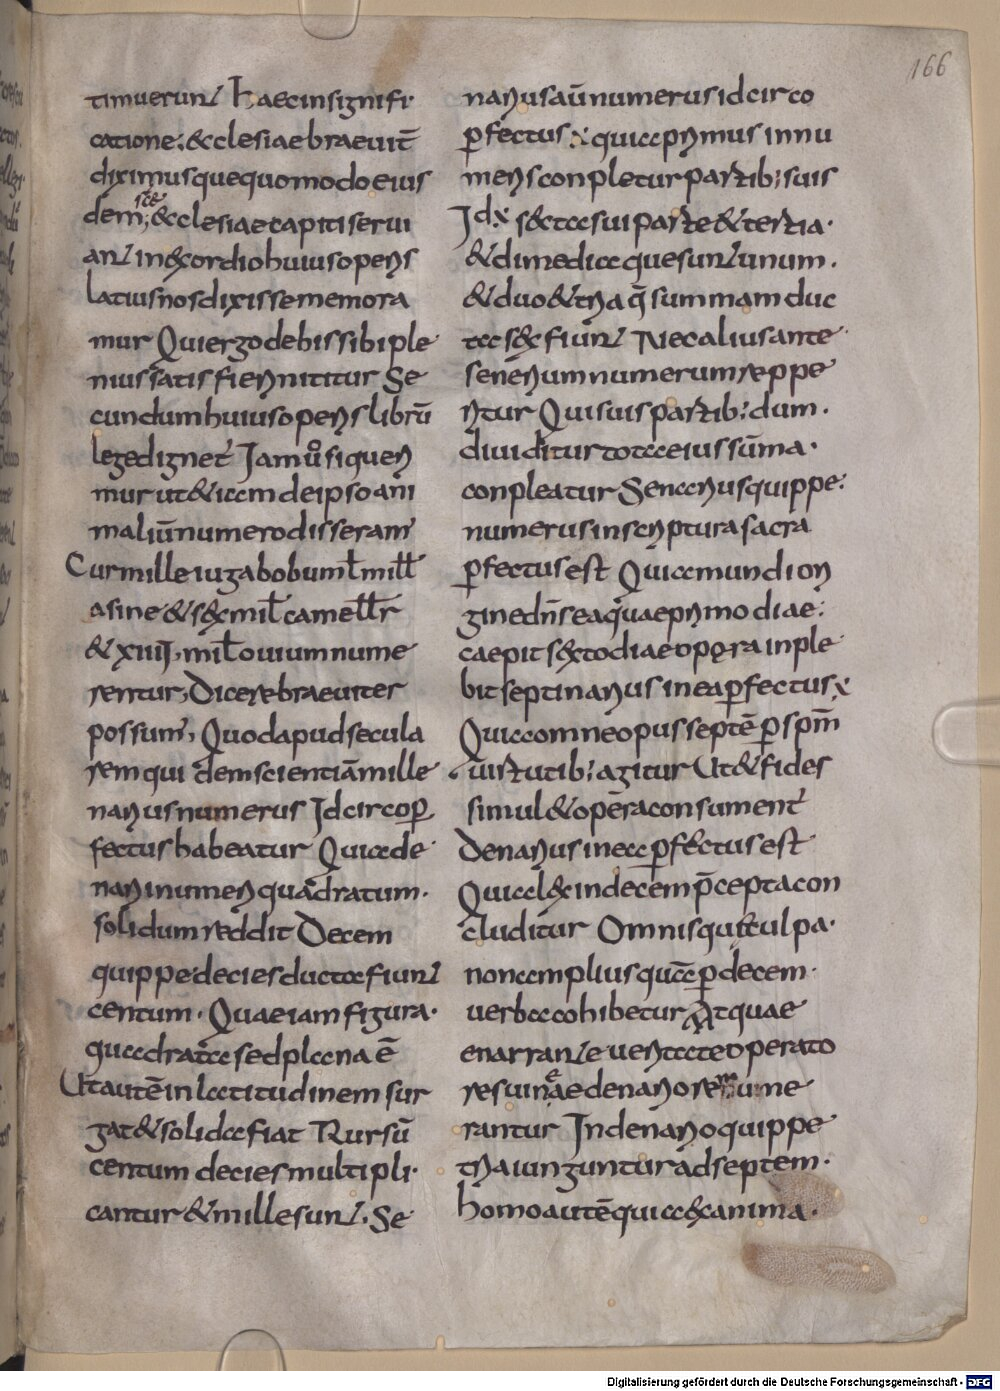 166
timuerunt Haec in signifi
catione: & cclesiae braeuit̄
diximusque quomodo eius
dem; scē & cclesiae capiti serui
ant in & cordio huius operis
latius nos dixisse memora
mur Qui ergo de bis sibi ple
nius satis fieri nititur Se
cundum huius operis librū
lege dignet̄ Iam ů si queri
mur ut & iam de ipso ani
maliū numero disseram̄
Cur mille iuga bobum ł mill
asine & sex mił camell r
& XIIII, mił ouium nume
rentur, Dicere braeuiter
possum, Quod apud secula
rem qui dem scientiā mille
narius numerus Idcirco ꝑ
fectus habeatur Quia de
narii numeri quadratum.
solidum reddit Decem
quippe decies ducta fiunt
centum. Quae iam figura.
quadrata sed plana ē
Ut autē in latitudinem sur
gat & solida fiat Rursū
centum decies multipli.
cantur & mille sunt. Se
narius aū numerus idcirco
ꝑfectus: quia primus in nu
meris conpletur partib; suis
Id sexta sui parte & tertia.
& dimedia que sunt unum.
& duo & tria q̄ summam duc
ta sex fiunt Nec alius ante
senerium numerum reppe
ritur Qui suis partib; dum.
diuiditur tota eius sūma.
conpleatur Senarius quippe:
numerus in scriptura sacra
ꝑfectus est Quia mundi ori
gine dn̄s ea quae primo diae:
caepit sexto diae opera inple
bit septinarius in ea ꝑfectus
Quia omne opus septē ꝑ spm̄
uirtutib; agitur Ut & fides
simul & opera consument̄
Denarius in ea ꝑfectus est
Quia lex in decem p̄cepta con
cluditur Omnisque culpa.
non amplius quā ꝑ decem.
uerba cohibetur Atquae
enarrante ueritate operato
res uineae denario remume
rantur In denario quippe
tria iunguntur ad septem.
homo autē quia ex anima.
Digitalisierung gefördert durch die Deutsche Forschungsgemeinschaft - DFG